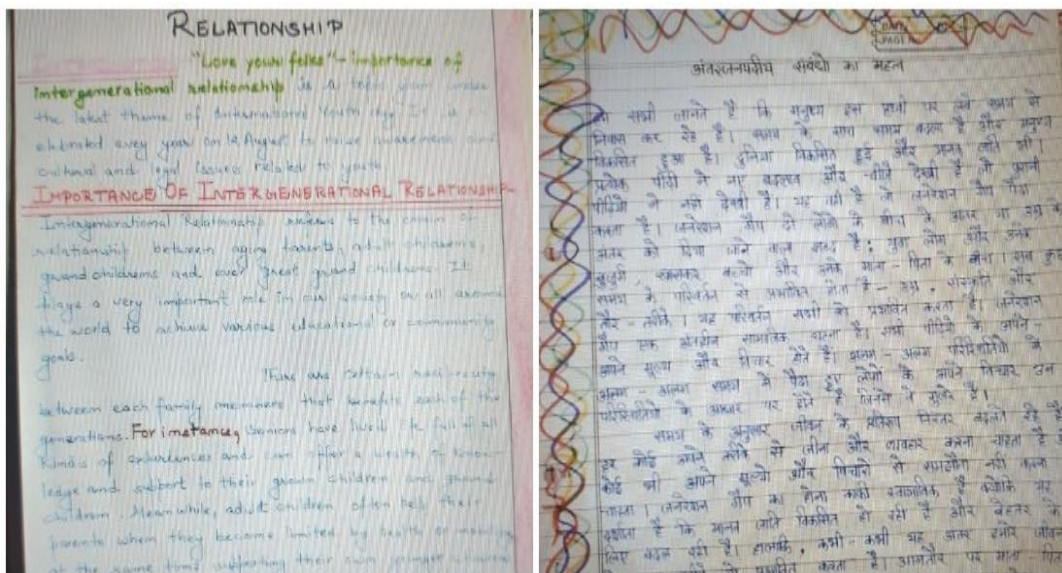 RELATIONSHIP
"Love your folks" - importance of
intergenerational relationship is a topic given under
the latest theme of International Youth day. It is
celebrated every year on 12 August to raise awareness
cultural and legal Issues Related to youth.
IMPORTANCE OF INTERGENERATIONAL RELATIONSHIP-
Intergenerational Relationship refers to the chain of
relationship between aging parents, adult childrens,
grand childrens and even great grand childrens. It
plays a very important role in our society or all around
the world to achieve various educational or community
goals.
There are certain reciprocity
between each family members that benefits each of the
generations. For instance, Seniors have lived life full of all
kinds of experiences and can offer a wealth of know-
ledge and support to their grown children and grand
children. Meanwhile, adult children often help their
parents when they become limited by health or mobility
at the same time supporting their own younger
DATE
PAGE
संबंधों का महत्व
सभी जानते है कि मनुष्य इस पर लंबे समय से
निवास कर रहे है। समय के साथ समय बदला है और मनुष्य
विकसित हुआ है। दुनिया विकसित हुई और मानव जाति भी।
प्रत्येक पीढ़ी ने नए बदलाव और चीजे देखी है जो पुरानी
पीढ़ियो ने नही देखी है। यह वही है जो जनरेशन गैप पैदा
करता है। जनरेशन गैप दो लोगों के बीच के अंतर या उम्र के
अंतर को दिया जाने वाला शब्द है; युवा लोग और उनके
बुजुर्ग, खासकर बच्चो और उनके माता - पिता के बीच। सब कुछ
समय के परिवर्तन से प्रभावित होता है - उम्र, संस्कृति और
तौर - तरीके। यह परिवर्तन सभी को प्रभावित करता है। जनरेशन
गैप एक अंतहीन सामाजिक घटना है। सभी पीढ़ियो के अपने -
अपने मूल्य और विचार होते है। अलग - अलग परिस्थितियो मे
अलग - अलग समय मे पैदा हुए लोगों के अपने विचार उन
परिस्थितियो के आधार पर होते है जिनसे वे गुजरे है।
समय के अनुसार जीवन के निरंतर बदलते रहे है
हर कोई अपने तरीके से जीना और व्यवहार करना चाहता है
कोई भी अपने मूल्यो और विचारो से समझौता नही करना
चाहता। जनरेशन गैप का होना काफी स्वाभाविक है क्योंकि यह
दर्शाता है कि मानव जाति विकसित हो रही है और बेहतर के
लिए बदल रही है। हालांकि, कभी - कभी यह अंतर हमारे जीवन
प्रभावित करता है। आमतौर पर माता